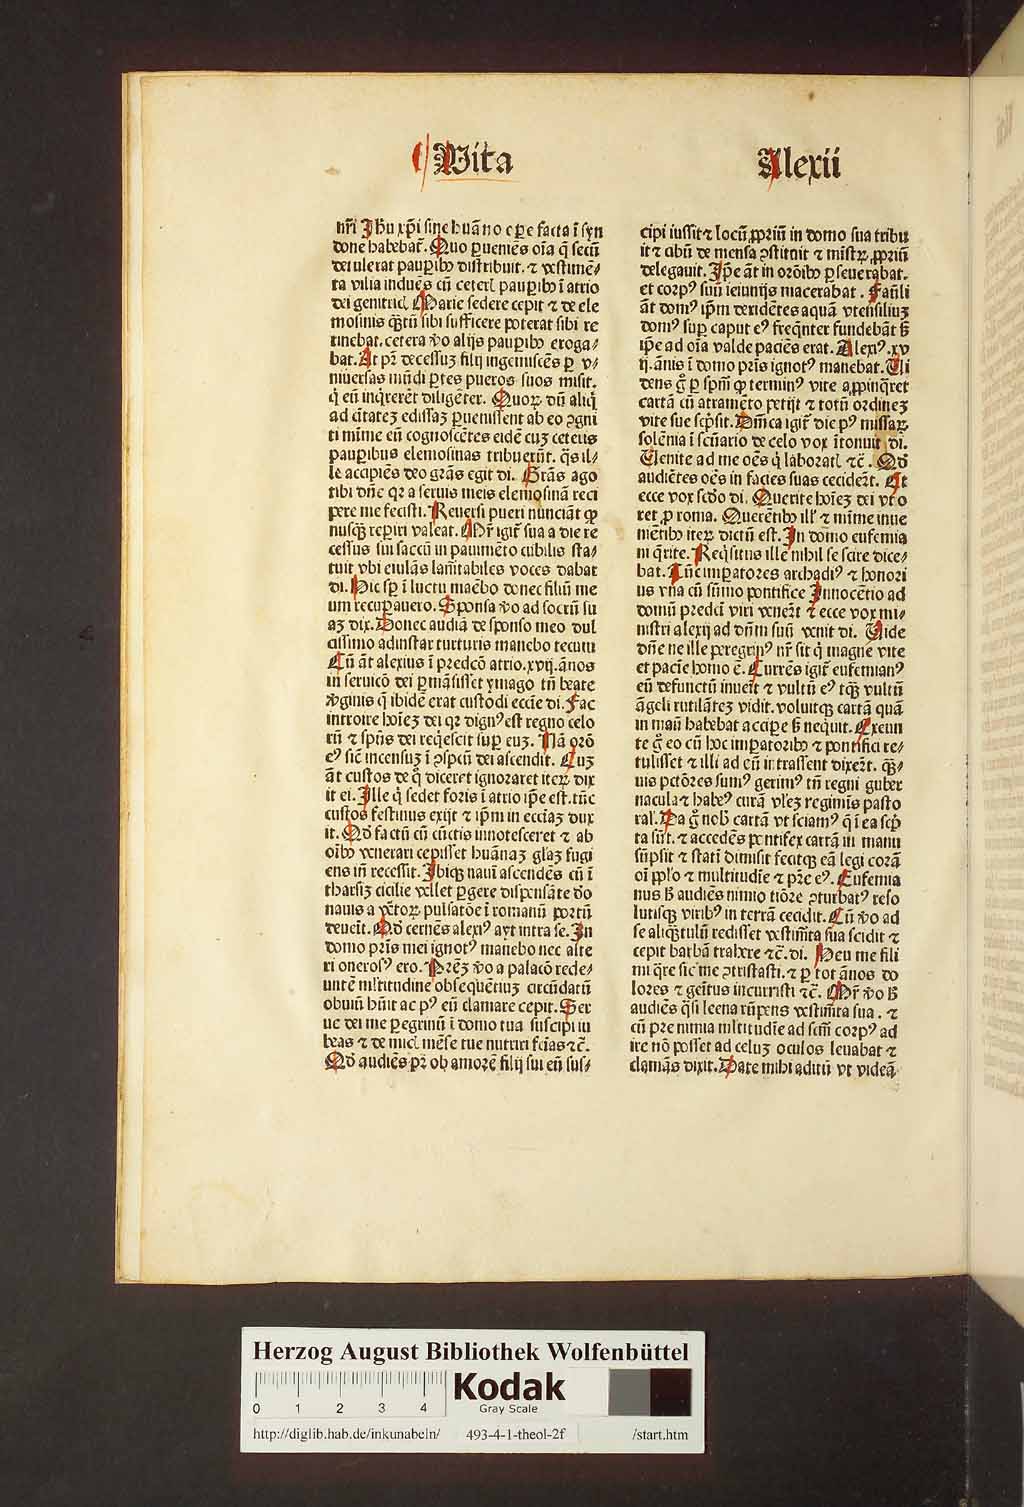 Vita Alexii
nr̄i Jhū xp̄i sine huāno oꝑe facta ī syn
done habebat̄. Quo ꝑueniēs oīa q̄ secū
detulerat pauꝑibꝰ distribuit. ⁊ vestimē⸗
ta vilia induēs cū ceteri pauꝑibꝰ ī atrio
dei genitrici Marie sedere cepit ⁊ de ele
mosinis qn̄tū sibi sufficere poterat sibi re
tinebat. cetera ꝟo alijs pauꝑibꝰ eroga⸗
bat. At pr̄ decessuʒ filij ingemiscēs ꝑ v⸗
niuersas mūdi ꝑtes pueros suos misit.
q̄ eū inq̄rerēt diligēter. Quoꝝ dū aliq̄
ad ciītateʒ edissaʒ ꝑuenissent ab eo ↄgni
ti mīme eū cognoscētes eidē cuʒ ceteris
pauꝑibus elemosinas tribuerūt. q̄s il⸗
le accipiēs deo gr̄as egit di. Gr̄as ago
tibi dn̄e qꝛ a seruis meis elemosinā reci
pere me fecisti. Reuersi pueri nunciāt ꝙ
nusq̄ꝫ reꝑiri valeat. Mr̄ igit̄ sua a die re
cessus sui saccū in pauimēto cubilis sta⸗
tuit vbi eiulās lamītabiles voces dabat
di. Hic sꝑ ī luctu maēbo donec filiū me
um recuꝑauero. Sponsa ꝟo ad socrū su
aʒ dix̄. Donec audiā de sponso meo dul
cissimo adinstar turturis manebo tecum
Cū āt alexius ī p̄dcō atrio .xvij. ānos
in seruicō dei ꝑmāsisset ymago tn̄ beate
ꝟginis q̄ ibidē erat custōdi eccīe di. Fac
introire hoīeʒ dei qꝛ dignꝰ est regno celo
rū ⁊ sp̄us dei req̄escit suꝑ euʒ. Nā orō
eꝰ sic̄ incensuʒ ī ↄspcū dei ascendit. Cuʒ
āt custos de q̄ diceret ignoraret iteꝝ dix̄
it ei. Ille q̄ sedet foris ī atrio ip̄e est. tūc
custos festinus exijt ⁊ ip̄m in ecc̄iaʒ dux
it. Qd̄ factū cū cūctis innotesceret ⁊ ab
oībꝰ venerari cepisset huānaʒ gl̄aʒ fugi
ens in̄ recessit. Ibiqꝫ nauī ascendēs cū ī
tharsiʒ cicilie vellet ꝑgere dispensāte dō
nauis a vētoꝝ pulsatōe ī romanū portū
deueit̄. Qd̄ cernēs alexiꝰ ayt intra se. In
domo pr̄is mei ignotꝰ manebo nec alte
ri onerosꝰ ero. Pr̄eʒ ꝟo a palacō rede⸗
untē ml̄titudine obsequētiuʒ circūdatū
obuiū hūit ac pꝰ eū clamare cepit. Ser
ue dei me ꝑegrinū ī domo tua suscipi iu
beas ⁊ de mic̄i mēse tue nutriri fcīas ⁊c̄.
Qd̄ audiēs pr̄ ob amorē filij sui eū sus⸗
cipi iussit ⁊ locū ꝓpriū in domo sua tribu
it ⁊ cibū de mensa ↄstituit ⁊ mīstꝝ ꝓpriū
delegauit. Ip̄e āt in orōibꝰ ꝑseuerabat.
et corpꝰ suū ieiunijs macerabat. Fam̄li
āt domꝰ ip̄m deridētes aquā vtensiliuʒ
domꝰ suꝑ caput eꝰ freq̄nter fundebāt sꝫ
ip̄e ad oīa valde paciēs erat. Alexiꝰ .xv
ij. ānis ī domo pr̄is ignotꝰ manebat. Ui
dens gͦ ꝑ spm̄ ꝙ terminꝰ vite aꝓpinq̄ret
cartā cū atramēto petijt ⁊ totū ordineʒ
vite sue scp̄sit. Dn̄ica igit̄ die pꝰ missaꝝ
solēnia ī sc̄uario de celo vox ītonuit di.
Uenite ad me oēs q̄ laborati ⁊c̄. Qd̄
audiētes oēs in facies suas ceciderūt. Et
ecce vox scd̄o di. Querite hoīeʒ dei vt o
ret ꝓ roma. Querētibꝰ ill̄ ⁊ mīme inue
niētibꝰ iteꝝ dictū est. In domo eufemia
ni q̄rite. Req̄situs ille nihil se scire dice⸗
bat. Tūc imꝑatores archadiꝰ ⁊ honori
us vna cū sūmo pontifice Innocētio ad
domū predcī viri venerūt ⁊ ecce vox mi⸗
nistri alexij ad dn̄m suū venit di. Uide
dn̄e ne ille peregrinꝰ nr̄ sit q̄ magne vite
et paciē homo ē. Currēs igit̄ eufemianꝰ
eū defunctū inueit̄ ⁊ vultū eꝰ tqꝫ vultū
āgeli rutilāteʒ vidit. voluitqꝫ cartā quā
in manu habebat accipere sꝫ nequit. Exeun
te gͦ eo cū hoc imꝑatoribꝰ ⁊ pontifici re⸗
tulisset ⁊ illi ad eū intrassent dixerūt. qꝫ⸗
uis pctōres sumꝰ gerimꝰ tn̄ regni guber
nacula ⁊ habeꝰ curā vl̄eʒ regimīs pasto
ral̄. Da gͦ nob̄ cartā vt sciamꝰ q̄ ī ea scp̄
ta sūt. ⁊ accedēs pontifex cartā in manu
sūpsit ⁊ statī dimisit fecitqꝫ eā legi corā
oī pplo ⁊ multitudīe ⁊ pr̄e eꝰ. Eufemia
nus ħ audiēs nimio tiōre ↄturbatꝰ reso
lutisqꝫ viribꝰ in terrā cecidit. Cū ꝟo ad
se aliqn̄tulū redisset vestimīta sua scidit ⁊
cepit barbā trahere ⁊c̄. di. Heu me fili
mi q̄re sic̄ me ↄtristasti. ⁊ ꝑ tot ānos do
lores ⁊ gemitus incurristi ⁊c̄. Mr̄ ꝟo ħ
audiēs q̄si leena rūpens vestimīta sua. ⁊
cū pre nimia ml̄titudīe ad scm̄ corpꝰ ad
ire nō posset ad celuʒ oculos leuabat ⁊
clamās dixit. Date mihi aditū vt videā
Herzog August Bibliothek Wolfenbüttel
0 1 2 3 4
Kodak
Gray Scale
http://diglib.hab.de/inkunabeln/ 493-4-1-theol-2f /start.htm